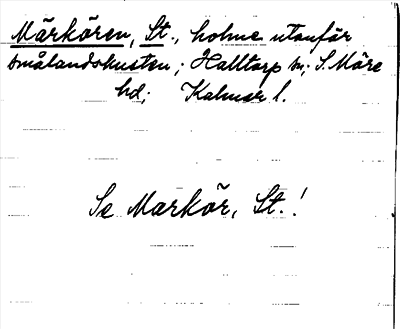 Märkören, St., holme utanför
Smålandskusten; Halltorp sn; S. Möre
hd; Kalmar l.
Se Markör, St.!